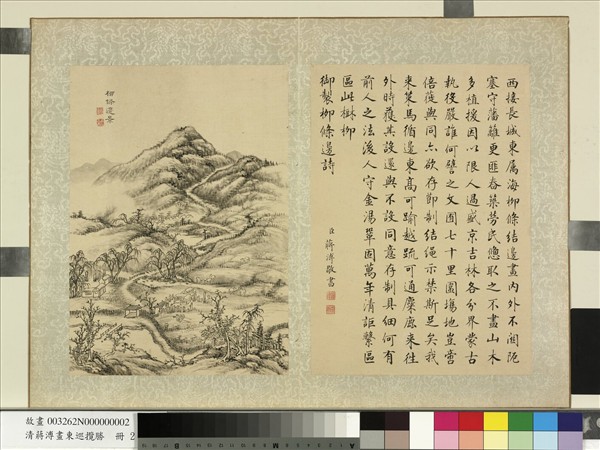 西接長城東屬海柳條結邊畫内外不關阨
塞守藩籬更匪舂築勞民憊取之不盡山木
多植援因以限人過盛京吉林各分界蒙古
執役嚴誰何譬之文囿七十里圍場地豈啻
倍蓰與同亦欲存節制結繩示禁斯足矣我
來策馬循邊東高可踰越疏可通麋鹿來往
外時獲其設還與不設同意存制具細何有
前人之法後人守金湯鞏固萬年清詎繫區
區此樹柳
御製柳條邊詩
臣蔣溥敬書
柳條邊景
故畫 003262N000000002
清蔣溥畫東巡攬勝 冊 2